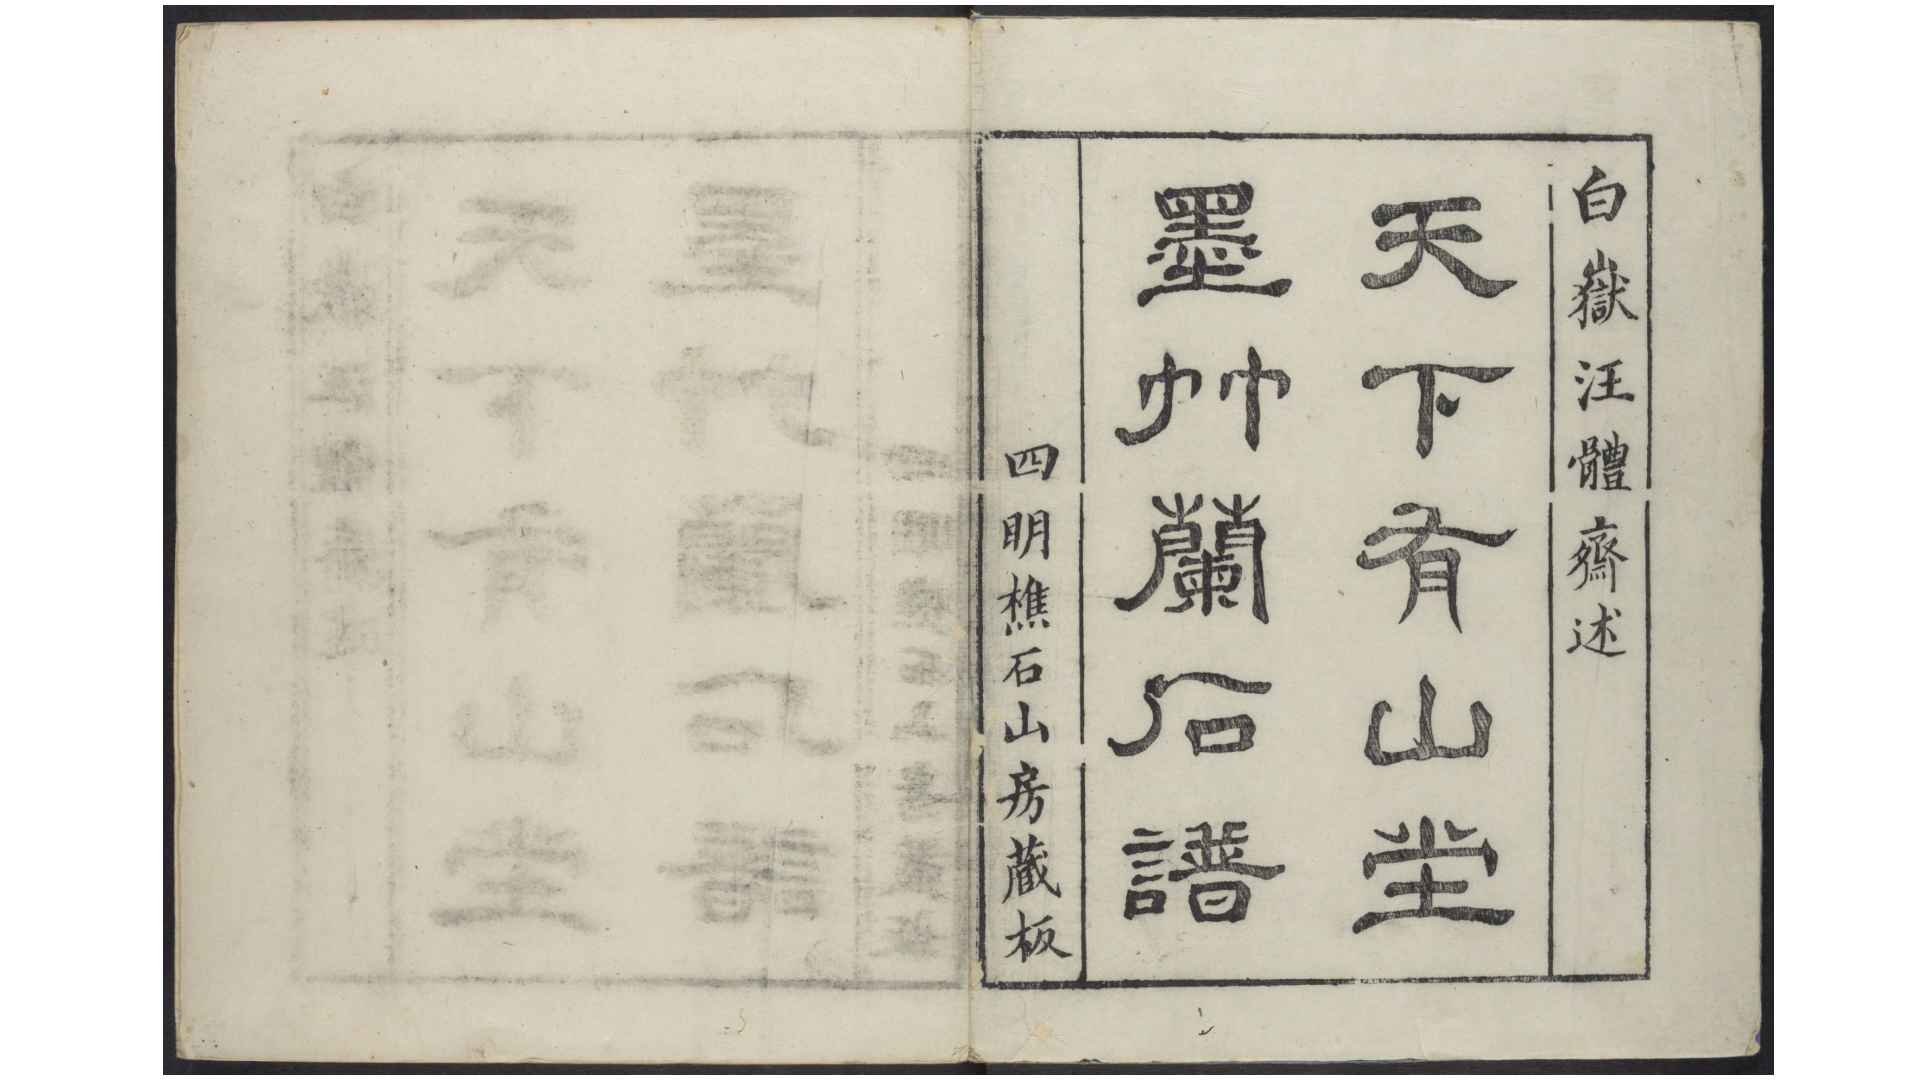 白嶽汪體齋述
天下有山堂
墨艸蘭石譜
四明樵石山房藏板